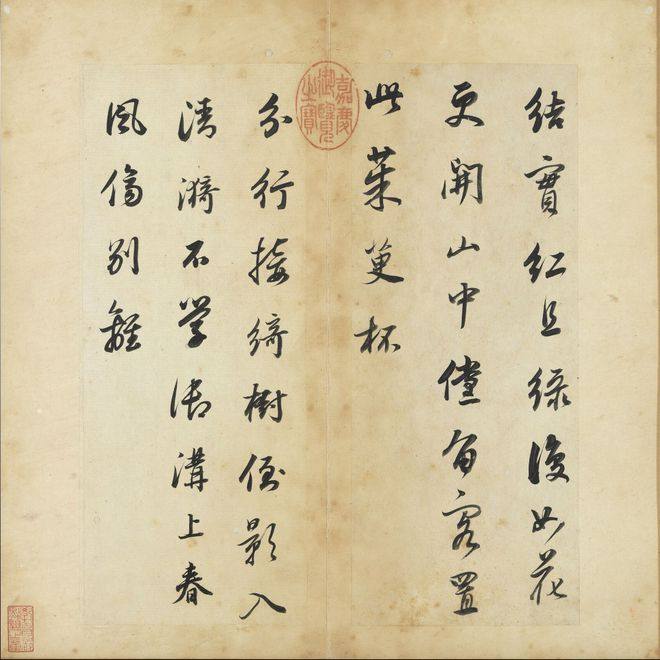 結實紅且綠復如花
更開山中儻留客置
此茱萸杯
嘉慶
御覽
之寶
分行接綺樹倒影入
清漪不學御溝上春
風傷別離